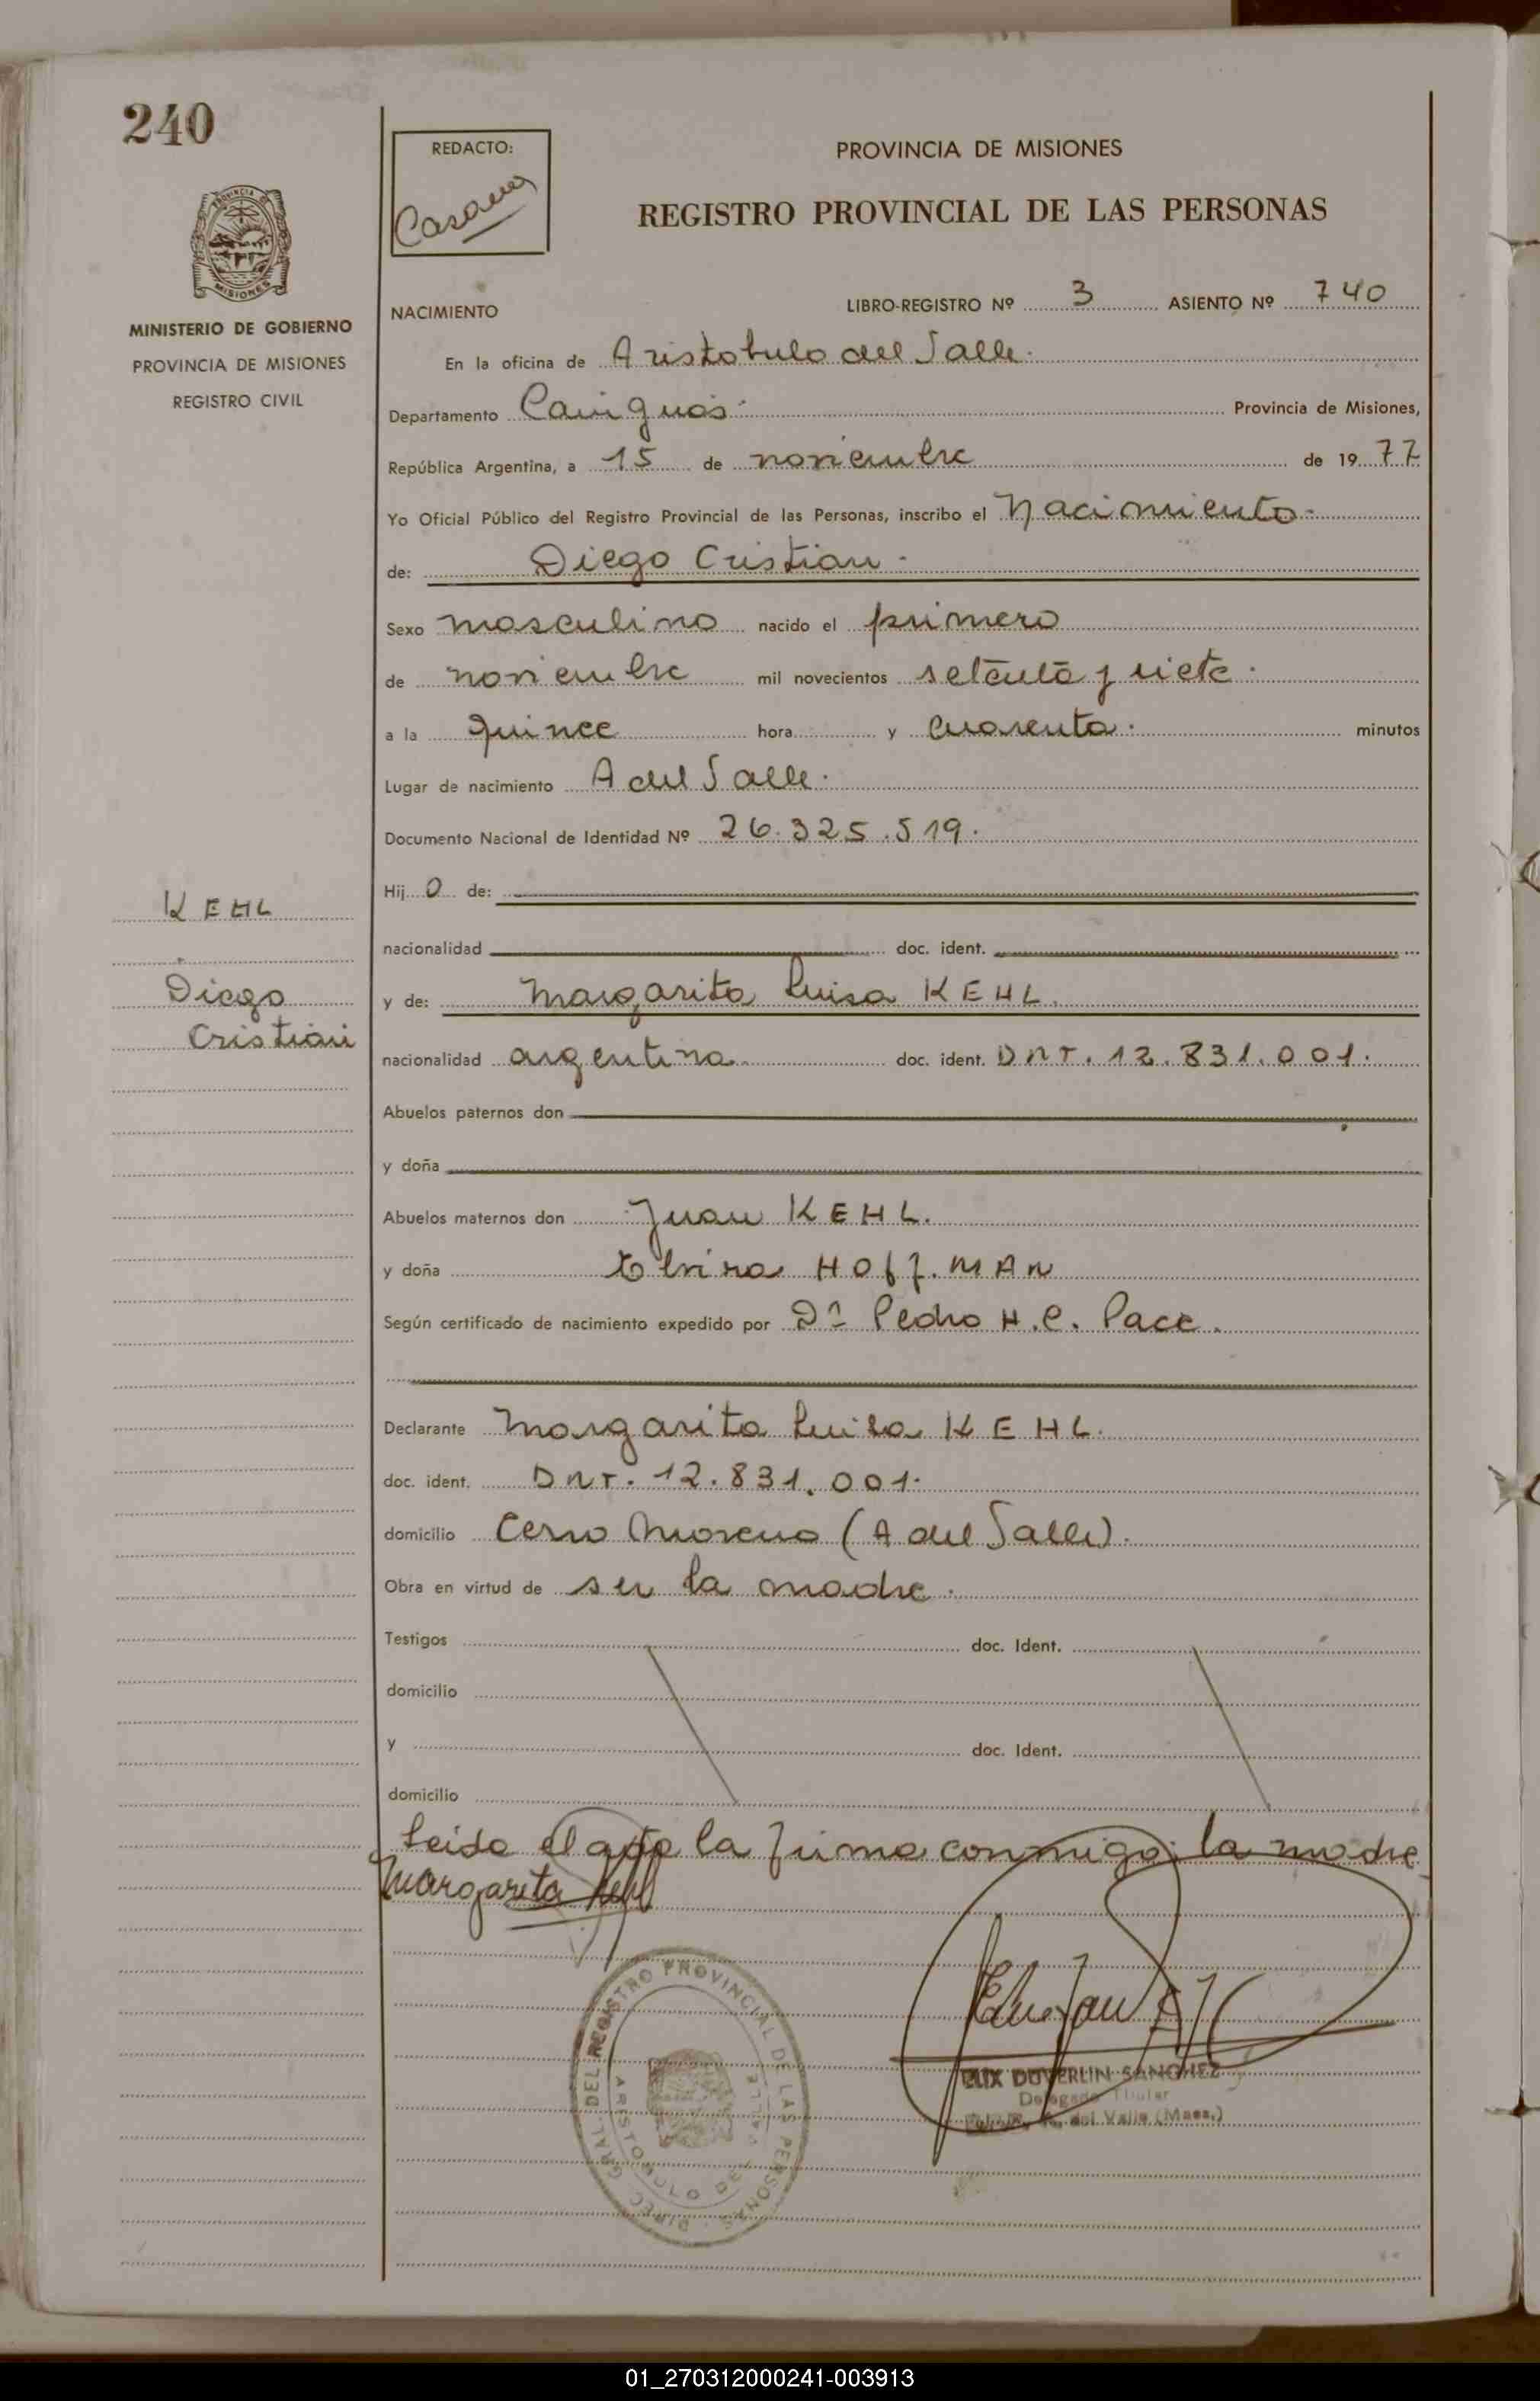 240
REDACTO:
Casares
PROVINCIA DE MISIONES
REGISTRO PROVINCIAL DE LAS PERSONAS
MISIONES
MINISTERIO DE GOBIERNO
PROVINCIA DE MISIONES
REGISTRO CIVIL
NACIMIENTO
LIBRO-REGISTRO Nº 3 ASIENTO Nº 740
En la oficina de Aristobulo del Valle.
Departamento Cainguas. Provincia de Misiones,
República Argentina, a 15 de noviembre de 1977
Yo Oficial Público del Registro Provincial de las Personas, inscribo el Nacimiento
de: Diego Cristian
Sexo masculino nacido el primero
de noviembre mil novecientos setenta y siete.
a la quince hora y cuarenta. minutos
Lugar de nacimiento A del Valle.
Documento Nacional de Identidad Nº 26.325.519.
Hijo de:
nacionalidad doc. ident.
KEHL
Diego
Cristian
y de: Margarita Luisa KEHL.
nacionalidad argentina doc. ident. DNI. 12.831.001.
Abuelos paternos don
y doña
Abuelos maternos don Juan KEHL.
y doña Elvira HOFF.MAN
Según certificado de nacimiento expedido por Dr Pedro H.C. Pace.
Declarante Margarita Luisa KEHL.
doc. ident. DNI. 12.831.001.
domicilio Cerro Moreno (A del Valle).
Obra en virtud de ser la madre.
Testigos doc. Ident.
domicilio
y doc. Ident.
domicilio
Leida el acta la firma conmigo la madre
Margarita Kehl
DIREC. GRAL. DEL REGISTRO PROVINCIAL DE LAS PERSONAS
ARISTOBULO DEL VALLE
DUVERLIN SANCHEZ
Delegado Titular
del Valle (Mnes.)
01_270312000241-003913